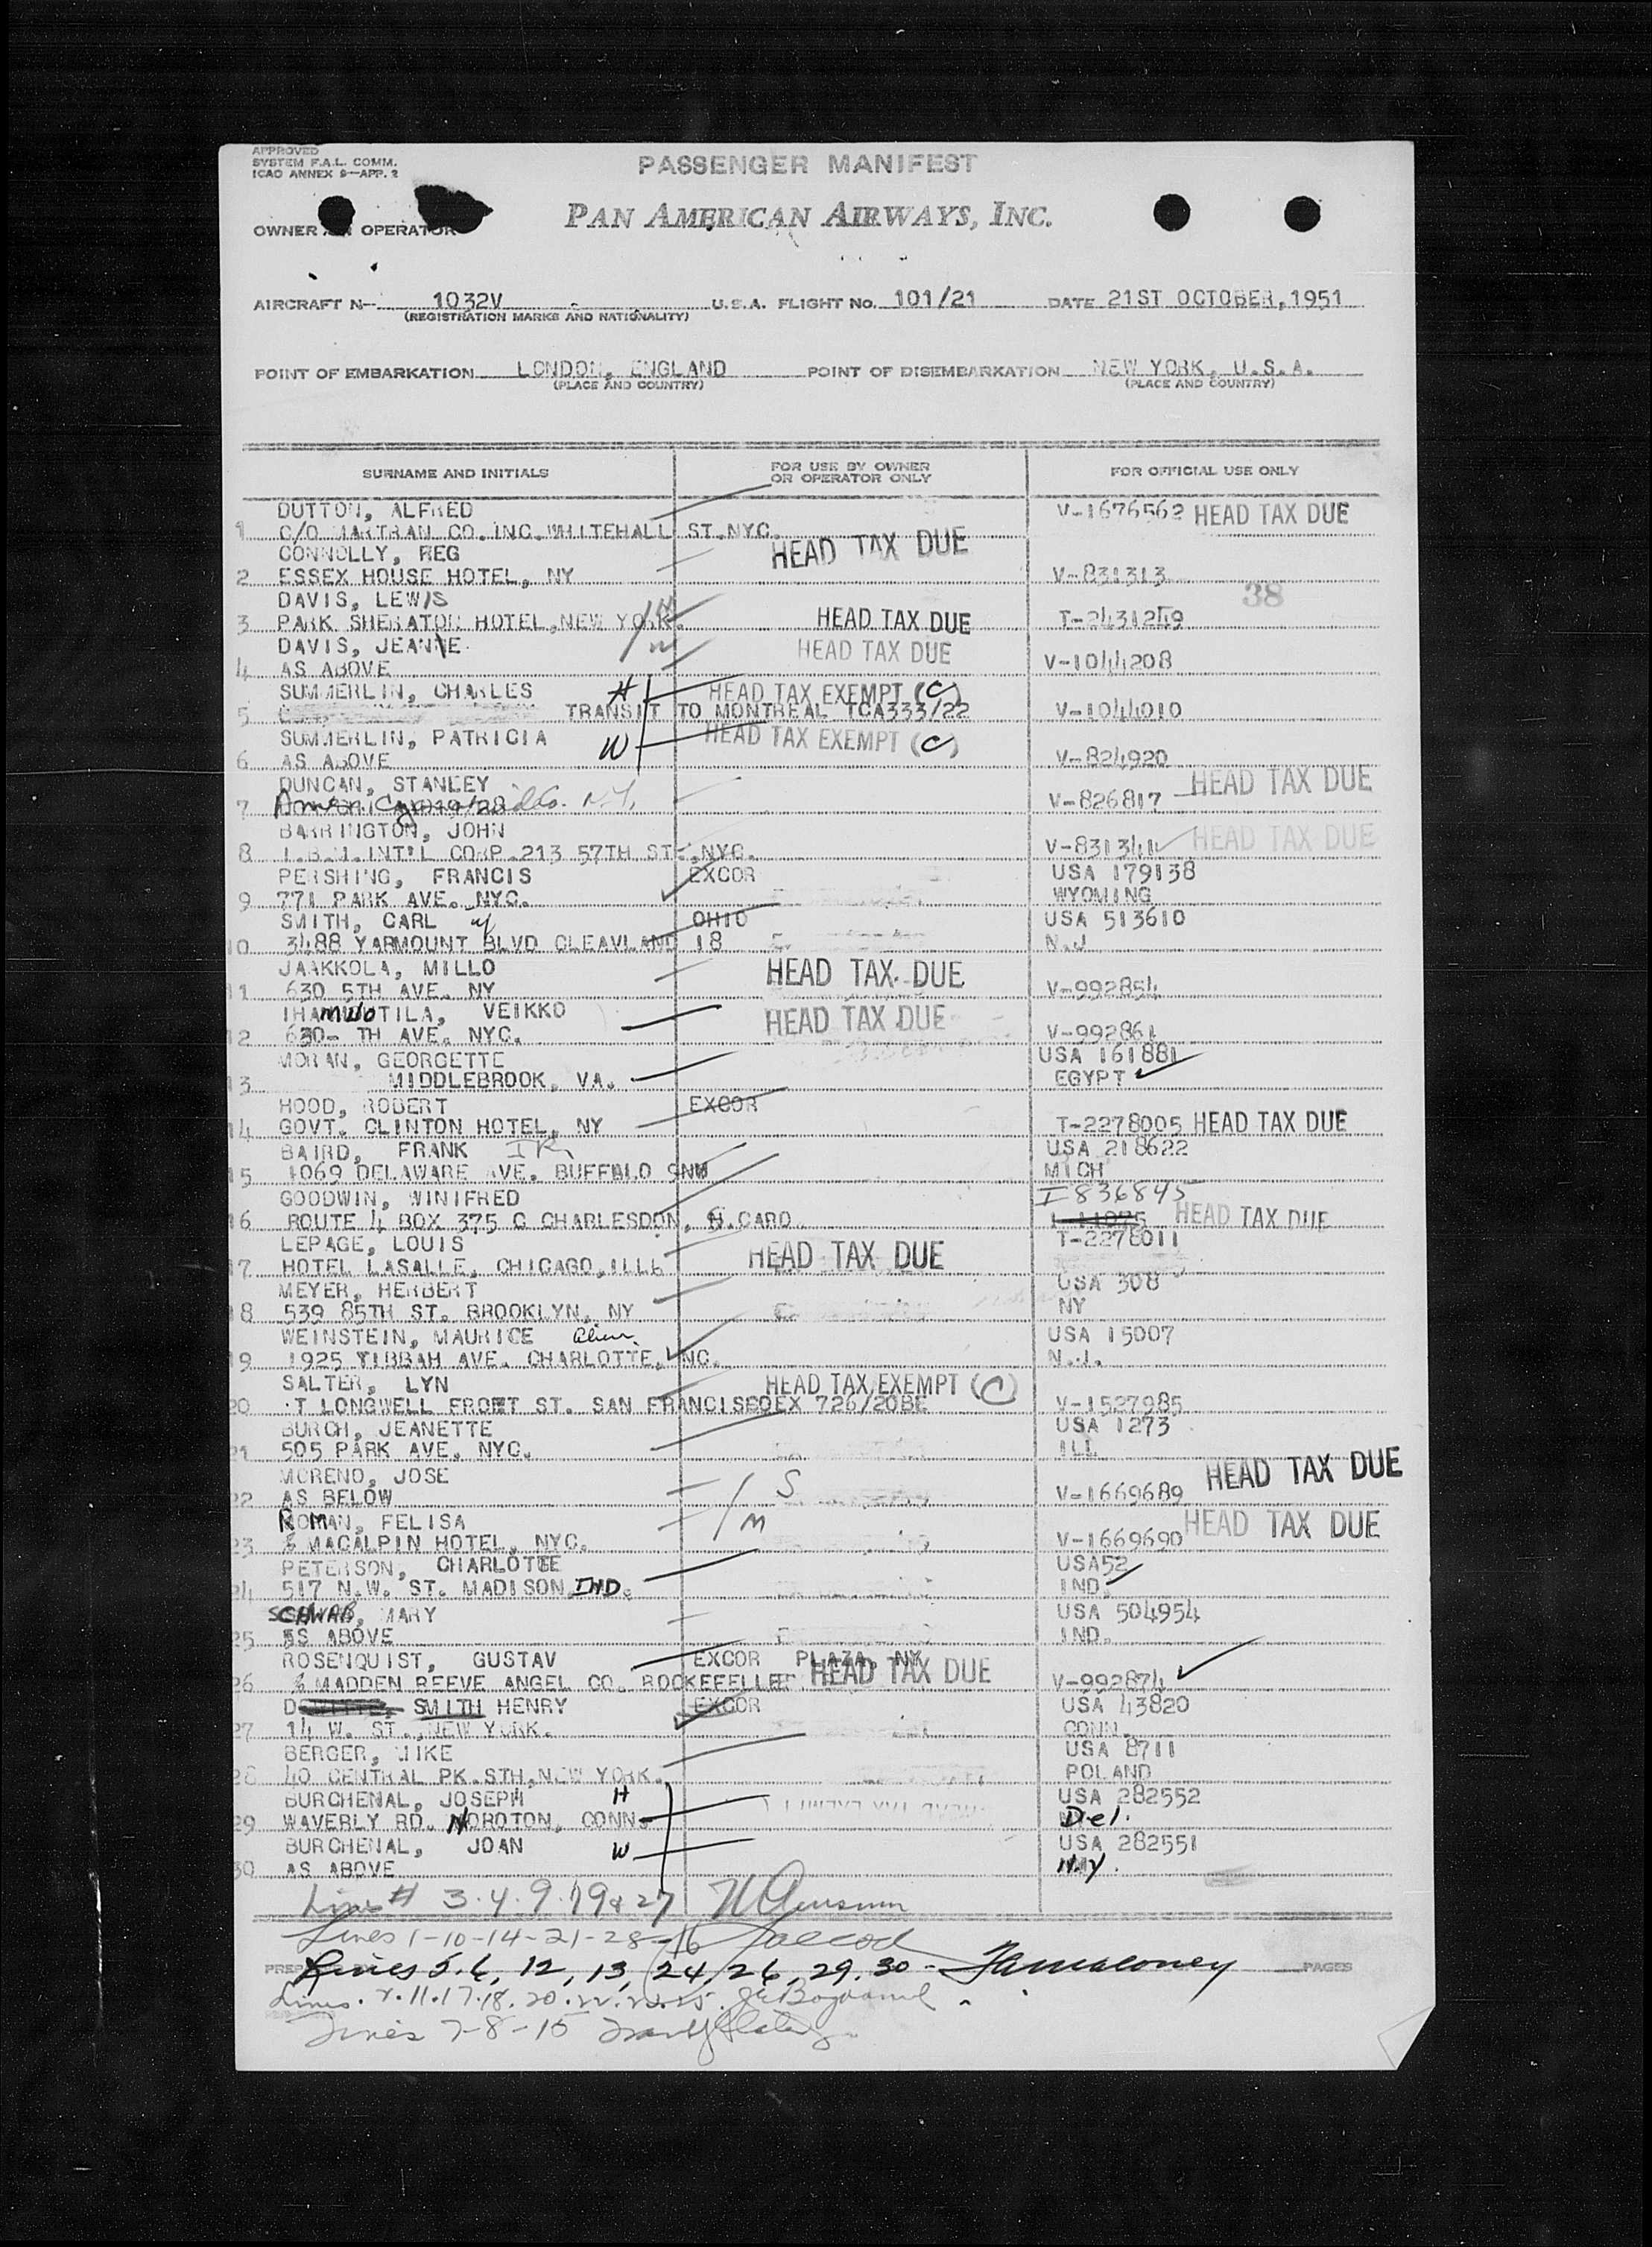 APPROVED
SYSTEM F.A.L. COMM.
ICAO ANNEX 9—APP. 2
PASSENGER MANIFEST
OWNER OPERATOR PAN AMERICAN AIRWAYS, INC.
AIRCRAFT N- 1032V U.S.A. FLIGHT No. 101/21 DATE 21ST OCTOBER, 1951
(REGISTRATION MARKS AND NATIONALITY)
POINT OF EMBARKATION LONDON, ENGLAND POINT OF DISEMBARKATION NEW YORK, U.S.A.
(PLACE AND COUNTRY) (PLACE AND COUNTRY)
SURNAME AND INITIALS FOR USE BY OWNER OR OPERATOR ONLY FOR OFFICIAL USE ONLY
DUTTON, ALFRED V-1676562 HEAD TAX DUE
1 C/O MARTRAN CO.INC.WHITEHALL ST.NYC.
CONNOLLY, REG HEAD TAX DUE
2 ESSEX HOUSE HOTEL, NY V-831313
DAVIS, LEWIS 38
3 PARK SHERATON HOTEL,NEW YORK. H HEAD TAX DUE T-2431249
DAVIS, JEANNE W HEAD TAX DUE
4 AS ABOVE V-1044208
SUMMERLIN, CHARLES H HEAD TAX EXEMPT (C)
5 TRANSIT TO MONTREAL TCA333/22 V-1044010
SUMMERLIN, PATRICIA W HEAD TAX EXEMPT (C)
6 AS ABOVE V-824920
DUNCAN, STANLEY HEAD TAX DUE
7 N.Y. V-826817
BARRINGTON, JOHN
8 I.B.M.INT'L CORP.213 57TH ST.,NYC. V-831341 HEAD TAX DUE
PERSHING, FRANCIS EXCOR USA 179138
9 771 PARK AVE. NYC. WYOMING
SMITH, CARL OHIO USA 513610
10 3488 YARMOUNT BLVD CLEAVLAND 18 N.J
JAAKKOLA, MILLO HEAD TAX DUE
11 630 5TH AVE. NY V-992854
IHAMUOTILA, VEIKKO HEAD TAX DUE
12 630- TH AVE. NYC. V-992861
MORAN, GEORGETTE USA 161881
13 MIDDLEBROOK, VA. EGYPT
HOOD, ROBERT EXCOR
14 GOVT. CLINTON HOTEL, NY T-2278005 HEAD TAX DUE
BAIRD, FRANK USA 218622
15 1069 DELAWARE AVE. BUFFALO 9NY MICH
GOODWIN, WINIFRED I 836845
16 ROUTE 4 BOX 375 C CHARLESDON, S.CARO. HEAD TAX DUE
LEPAGE, LOUIS HEAD TAX DUE T-2278011
17 HOTEL LASALLE, CHICAGO,ILL
MEYER, HERBERT USA 308
18 539 85TH ST. BROOKLYN, NY NY
WEINSTEIN, MAURICE USA 15007
19 1925 TIBBAH AVE. CHARLOTTE, NC. N.J.
SALTER, LYN HEAD TAX EXEMPT (C)
20 T LONGWELL FROET ST. SAN FRANCISEOEX 726/20BE V-1527985
BURCH, JEANETTE USA 1273
21 505 PARK AVE. NYC. ILL
MORENO, JOSE S HEAD TAX DUE
22 AS BELOW V-1669689
ROMAN, FELISA M HEAD TAX DUE
23 % MACALPIN HOTEL, NYC. V-1669690
PETERSON, CHARLOTTE USA52
24 517 N.W. ST. MADISON IND. IND.
SCHWAB, MARY USA 504954
25 AS ABOVE IND.
ROSENQUIST, GUSTAV EXCOR PLAZA, NY
26 % MADDEN REEVE ANGEL CO. ROCKEFELLER HEAD TAX DUE V-992874
SMITH HENRY EXCOR USA 43820
27 14 W. ST.,NEW YORK. CONN.
BERGER, MIKE USA 8711
28 40 CENTRAL PK.STH,NEW YORK. POLAND
BURCHENAL, JOSEPH H USA 282552
29 WAVERLY RD. NOROTON, CONN. Del.
BURCHENAL, JOAN W USA 282551
30 AS ABOVE N.Y.
Line # 3.4.9.19&27
Lines 1-10-14-21-28-16
Lines 5.6, 12, 13, 24, 26, 29, 30- PAGES
Lines
Lines 7-8-15